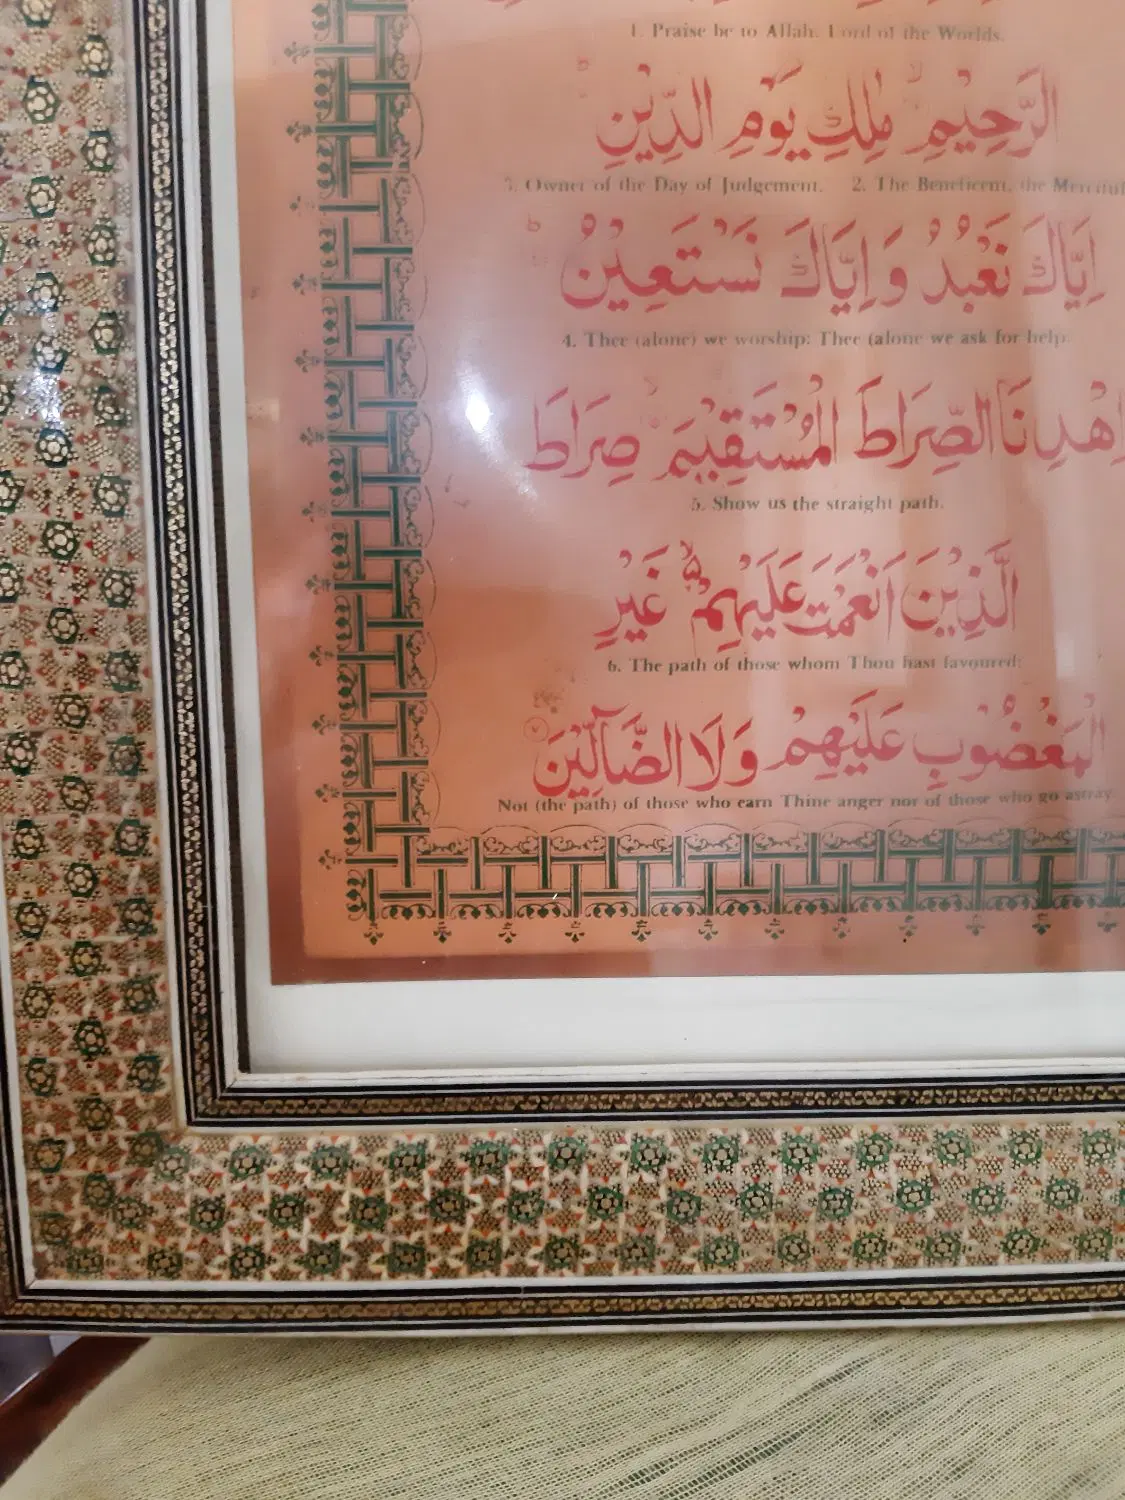 1. Praise be to Allah, Lord of the Worlds.
الرَّحِيْمِ مٰلِكِ يَوْمِ الدِّيْنِ
3. Owner of the Day of Judgement. 2. The Beneficent, the Merciful
اِيَّاكَ نَعْبُدُ وَاِيَّاكَ نَسْتَعِيْنُ
4. Thee (alone) we worship: Thee (alone we ask for help.
اِهْدِنَا الصِّرَاطَ الْمُسْتَقِيْمَ صِرَاطَ
5. Show us the straight path.
الَّذِيْنَ اَنْعَمْتَ عَلَيْهِمْ غَيْرِ
6. The path of those whom Thou hast favoured:
الْمَغْضُوْبِ عَلَيْهِمْ وَلَا الضَّآلِّيْنَ
Not (the path) of those who earn Thine anger nor of those who go astray